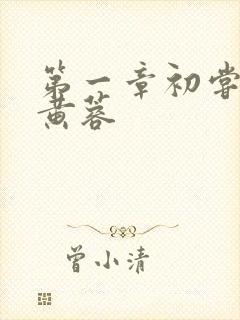 第一章初尝
黄蓉
曾小清